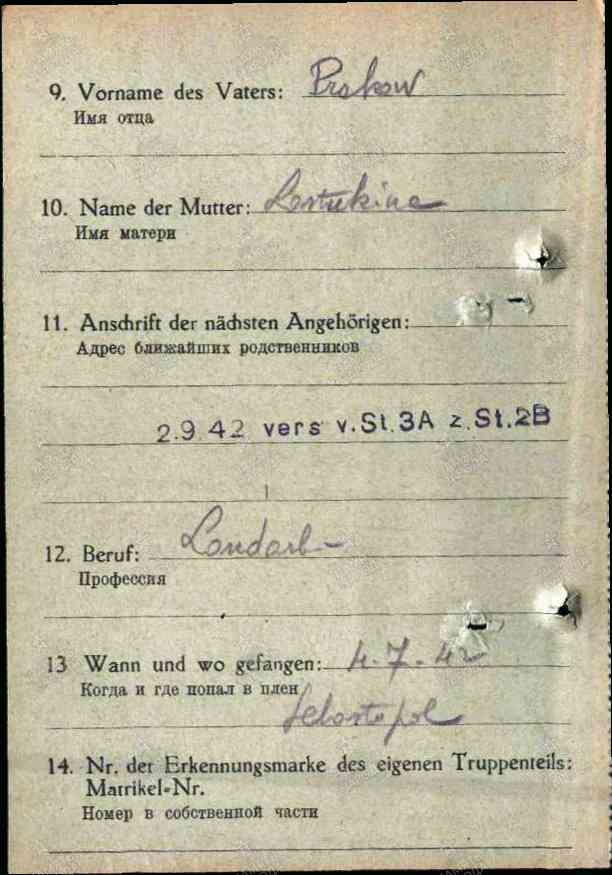 9. Vorname des Vaters: Prokow
Имя отца
10. Name der Mutter:
Имя матери
11. Anschrift der nächsten Angehörigen:
Адрес ближайших родственников
2.9.42 vers v.St.3A z.St.2B
12. Beruf: Landarb
Профессия
13 Wann und wo gefangen: 4.7.42
Когда и где попал в плен
Sebastopol
14. Nr. der Erkennungsmarke des eigenen Truppenteils:
Matrikel-Nr.
Номер в собственной части